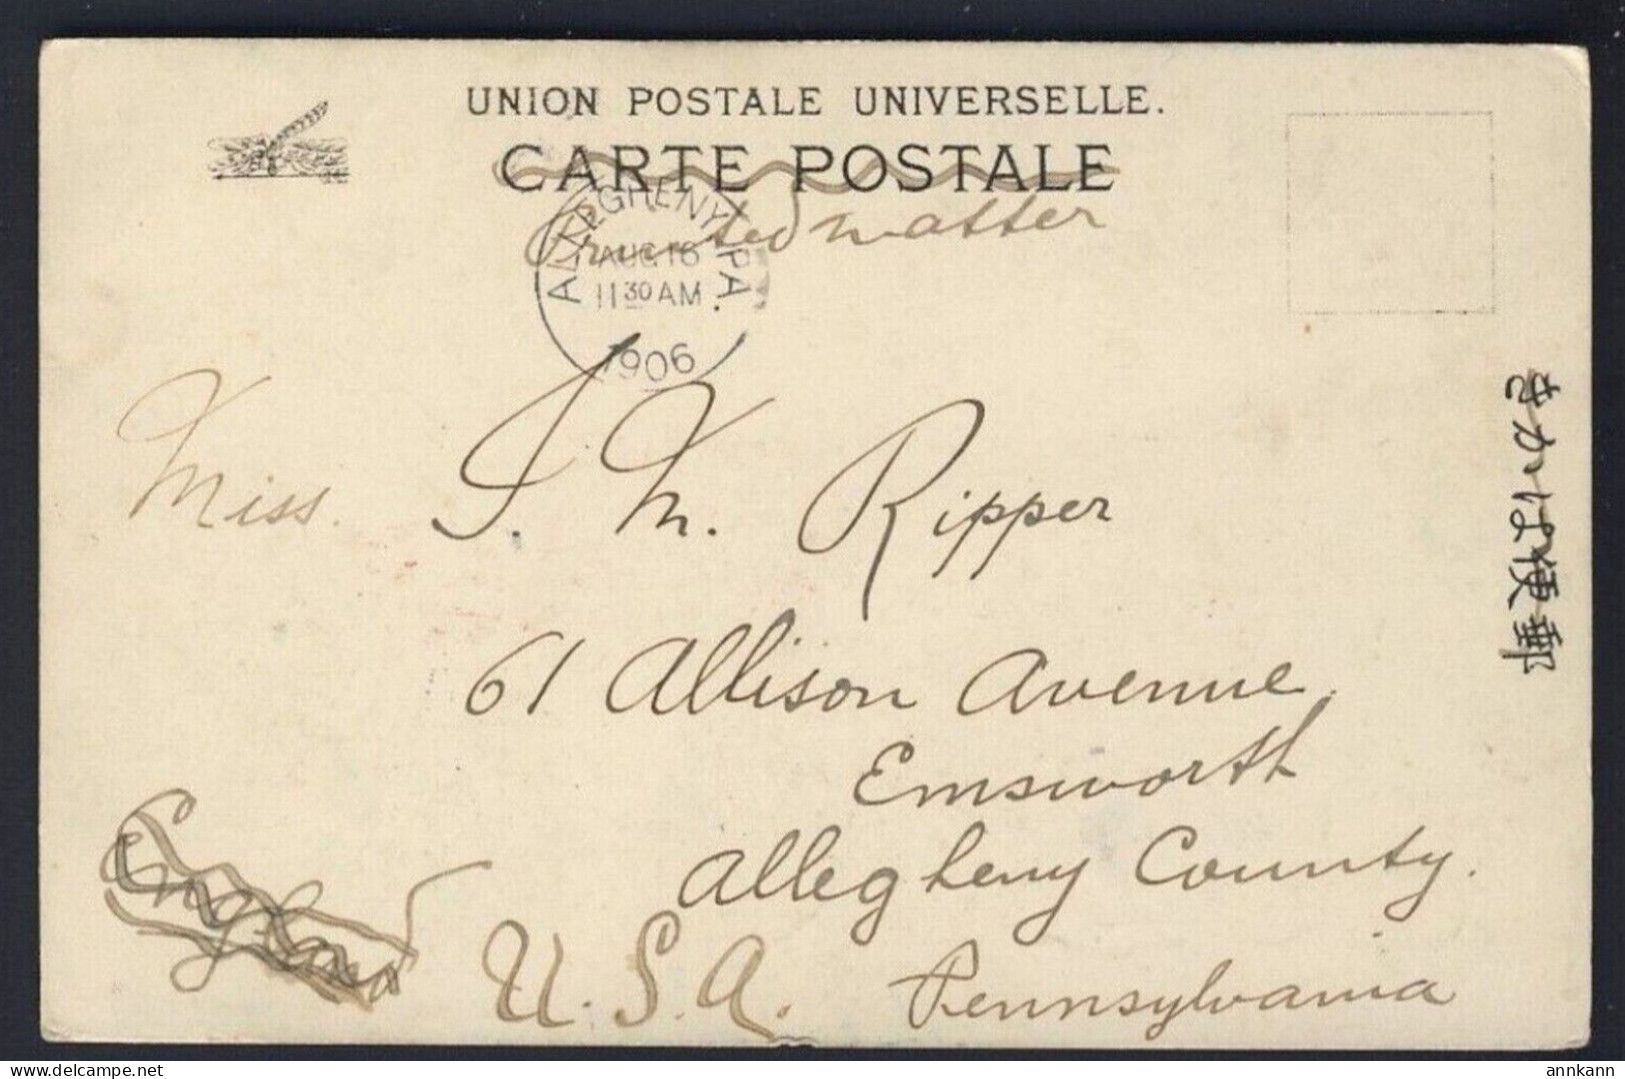 UNION POSTALE UNIVERSELLE.
CARTE POSTALE
Printed matter
ALLEGHENY, PA.
AUG 16
11 30 AM
1906
Miss. I. M. Ripper
61 Allison Avenue,
Emsworth
Allegheny County.
Pennsylvania
U.S.A.
England
きかは便郵
annkann